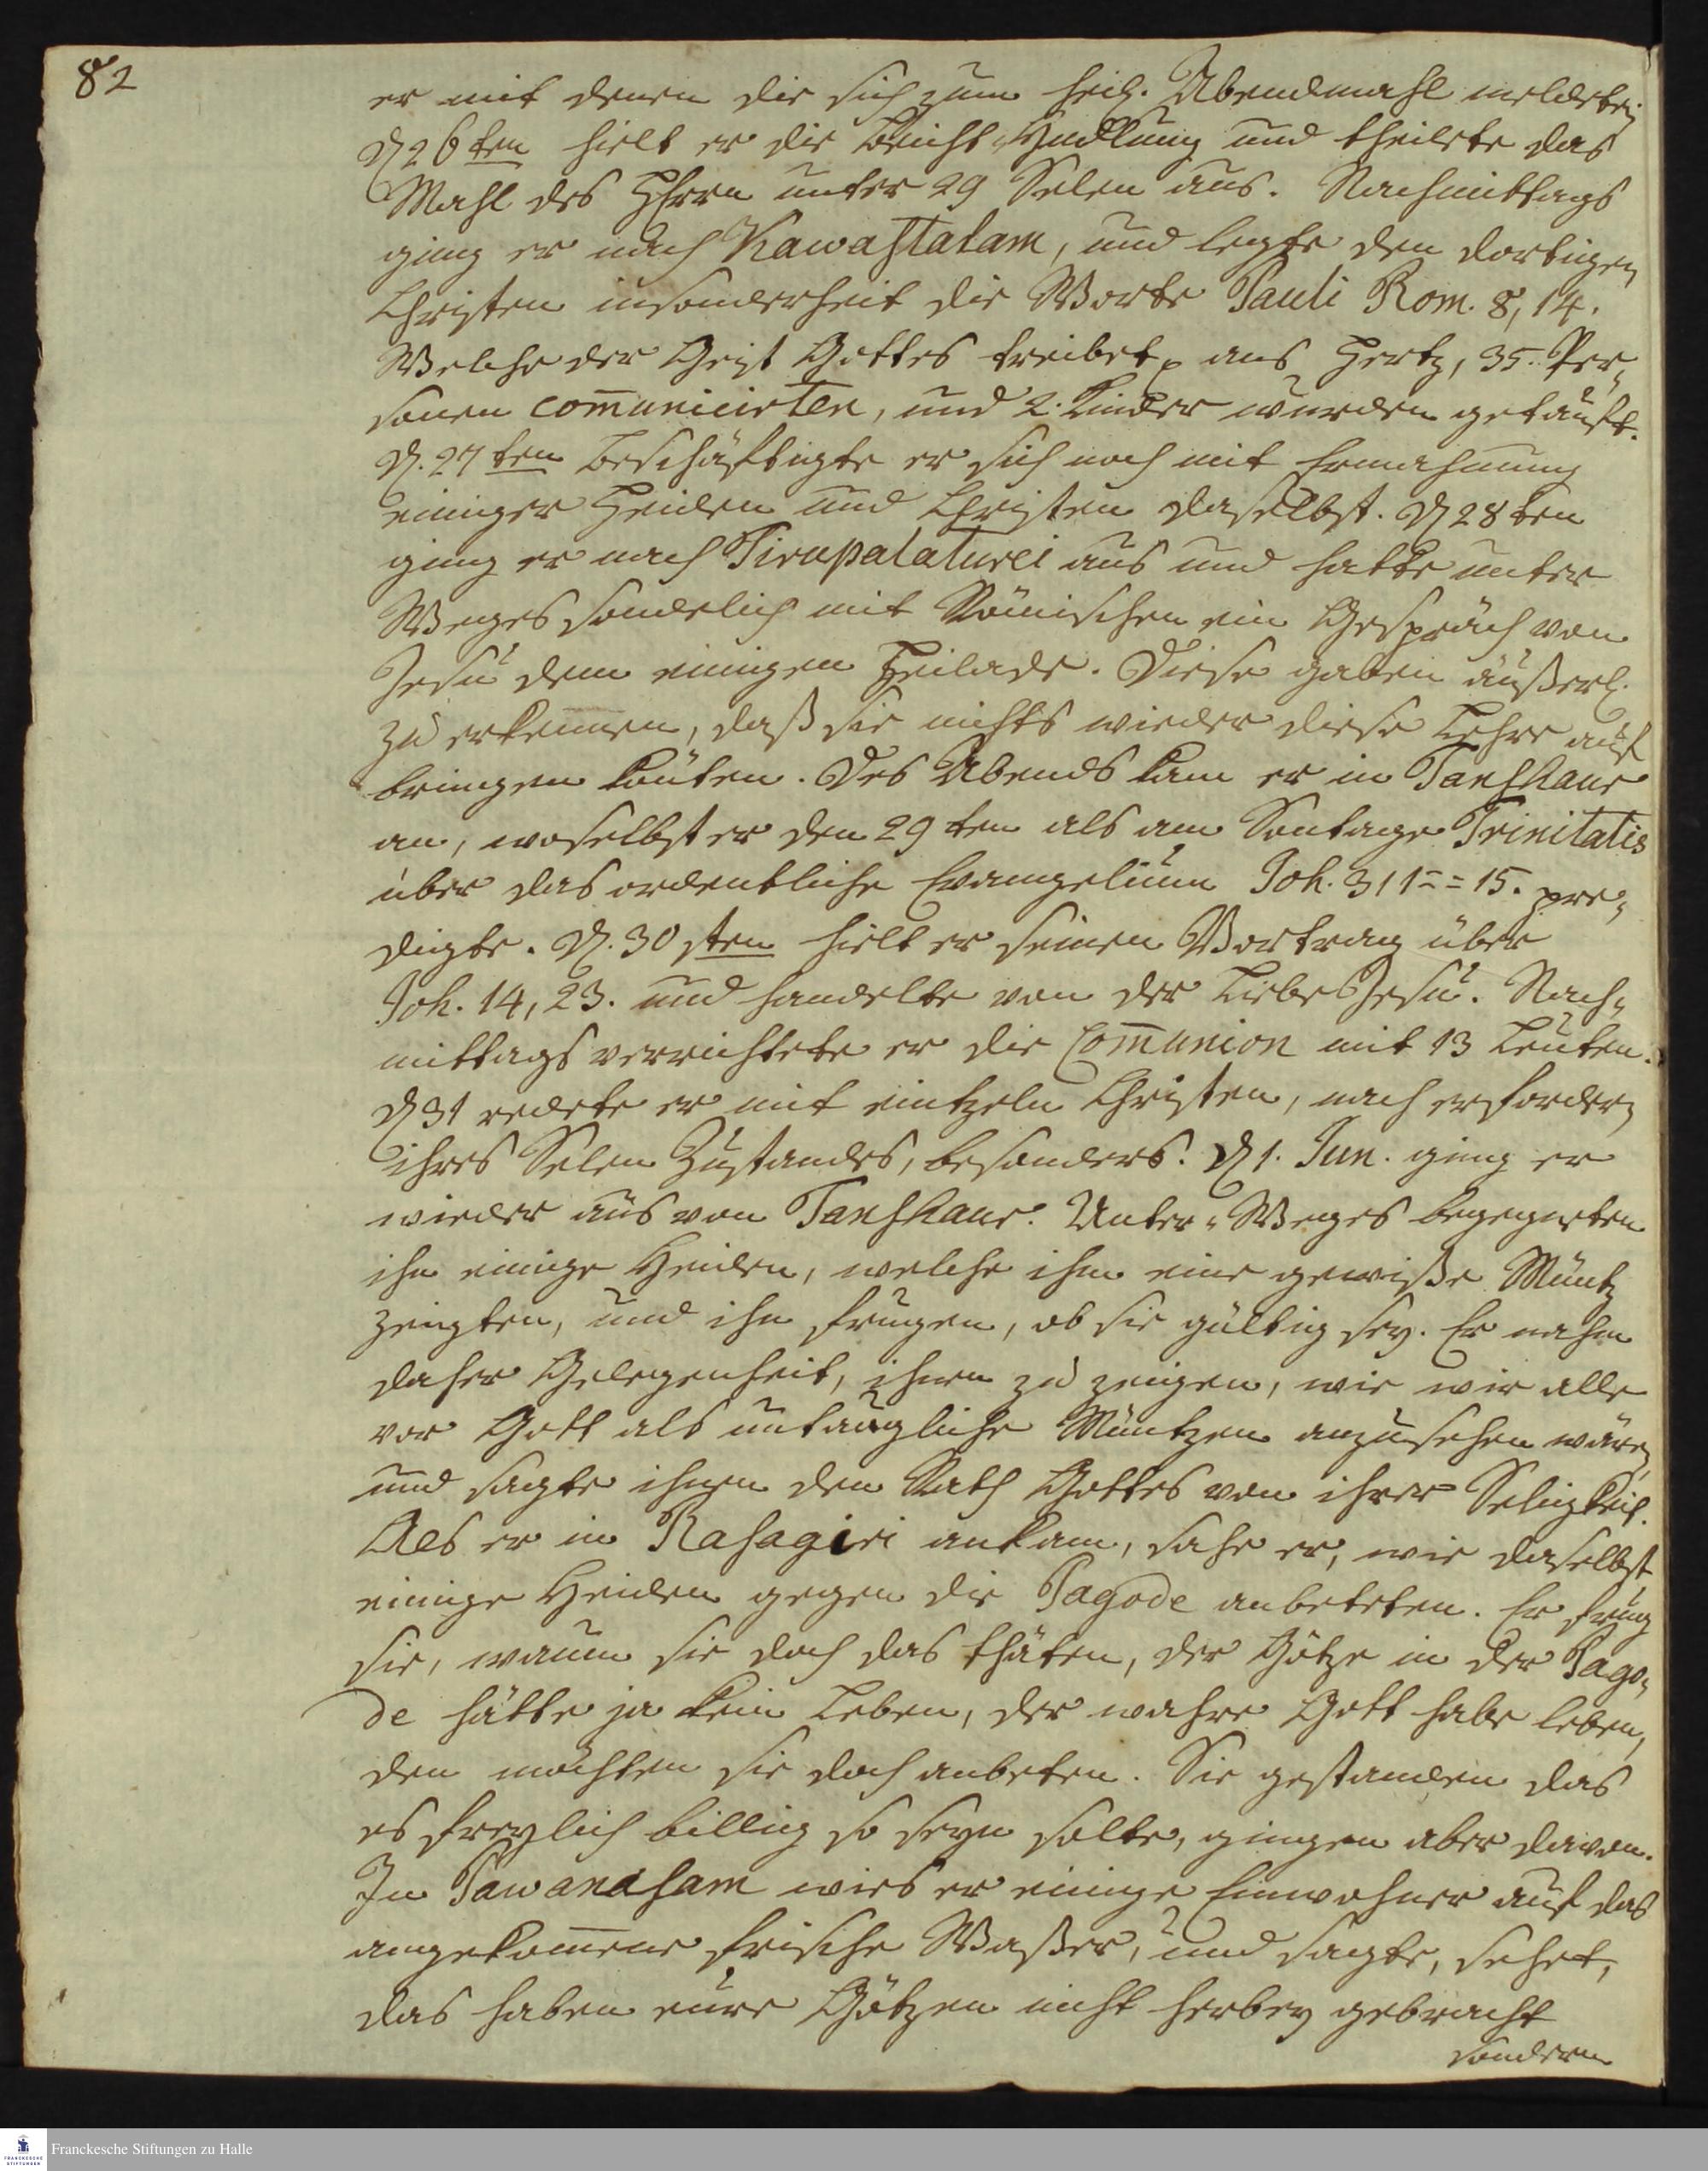 82
er mit denen die sich zum heil. Abendmahl meldeten
D 26ten hielt er die Beicht-Handlung und theilete das
Mahl des HErrn unter 29 Selen aus. Nachmittags
ging er nach Kawastalam, und legte den dortigen
Christen insonderheit die Worte Pauli Rom. 8, 14.
Welche der Geist Gottes treibet, ans Hertz, 35. Per-
sonen com̅unicirten, und 2. Kinder wurden getauft.
D. 27ten beschäftigte er sich noch mit Ermahnung
einiger Heiden und Christen daselbst. D 28ten
ging er nach Tirupalaturei aus und hatte unter
Weges sonderlich mit Römischen ein Gespräch von
Jesu dem einigen Heilande. Diese gaben äußerl.
zu erkennen, daß sie nichts wieder diese Lehre auf
bringen könten. Des Abends kam er in Tanshaur
an, woselbst er den 29ten als am Sontage Trinitatis
über das ordentliche Evangelium Joh. 3, 1 = = 15. pre-
digte. D. 30sten hielt er seinen Vortrag über
Joh. 14, 23. und handelte von der Liebe Jesu. Nach-
mittags verrichtete er die Com̅union mit 13 Leuten.
D 31 redete er mit eintzeln Christen, nach erfordern
ihres Selen Zustandes, besonders. D 1. Jun. ging er
wieder aus von Tanshaur. Unter-Weges begegneten
ihn einige Heiden, welche ihm eine gewiße Müntz
zeigten, und ihn frugen, ob sie gültig sey. Er nahm
daher Gelegenheit, ihnen zu zeigen, wie wir alle
vor Gott als untaugliche Müntzen anzusehen wären,
und sagte ihnen den Rath Gottes von ihrer Seligkeit.
Als er in Rasagiri ankam, sahe er, wie daselbst
einige Heiden gegen die Pagode anbeteten. Er frug
sie, warum sie doch das thäten, der Götze in der Pago-
de hätte ja kein Leben, der wahre Gott habe leben,
den möchten sie doch anbeten. Sie gestanden das
es freylich billig so seyn solte, gingen aber davon.
In Pawanasam wies er einige Einwohner auf das
angekom̅ene frische Waßer, und sagte, sehet,
das haben eure Götzen nicht herbey gebracht
sondern
Franckesche Stiftungen zu Halle